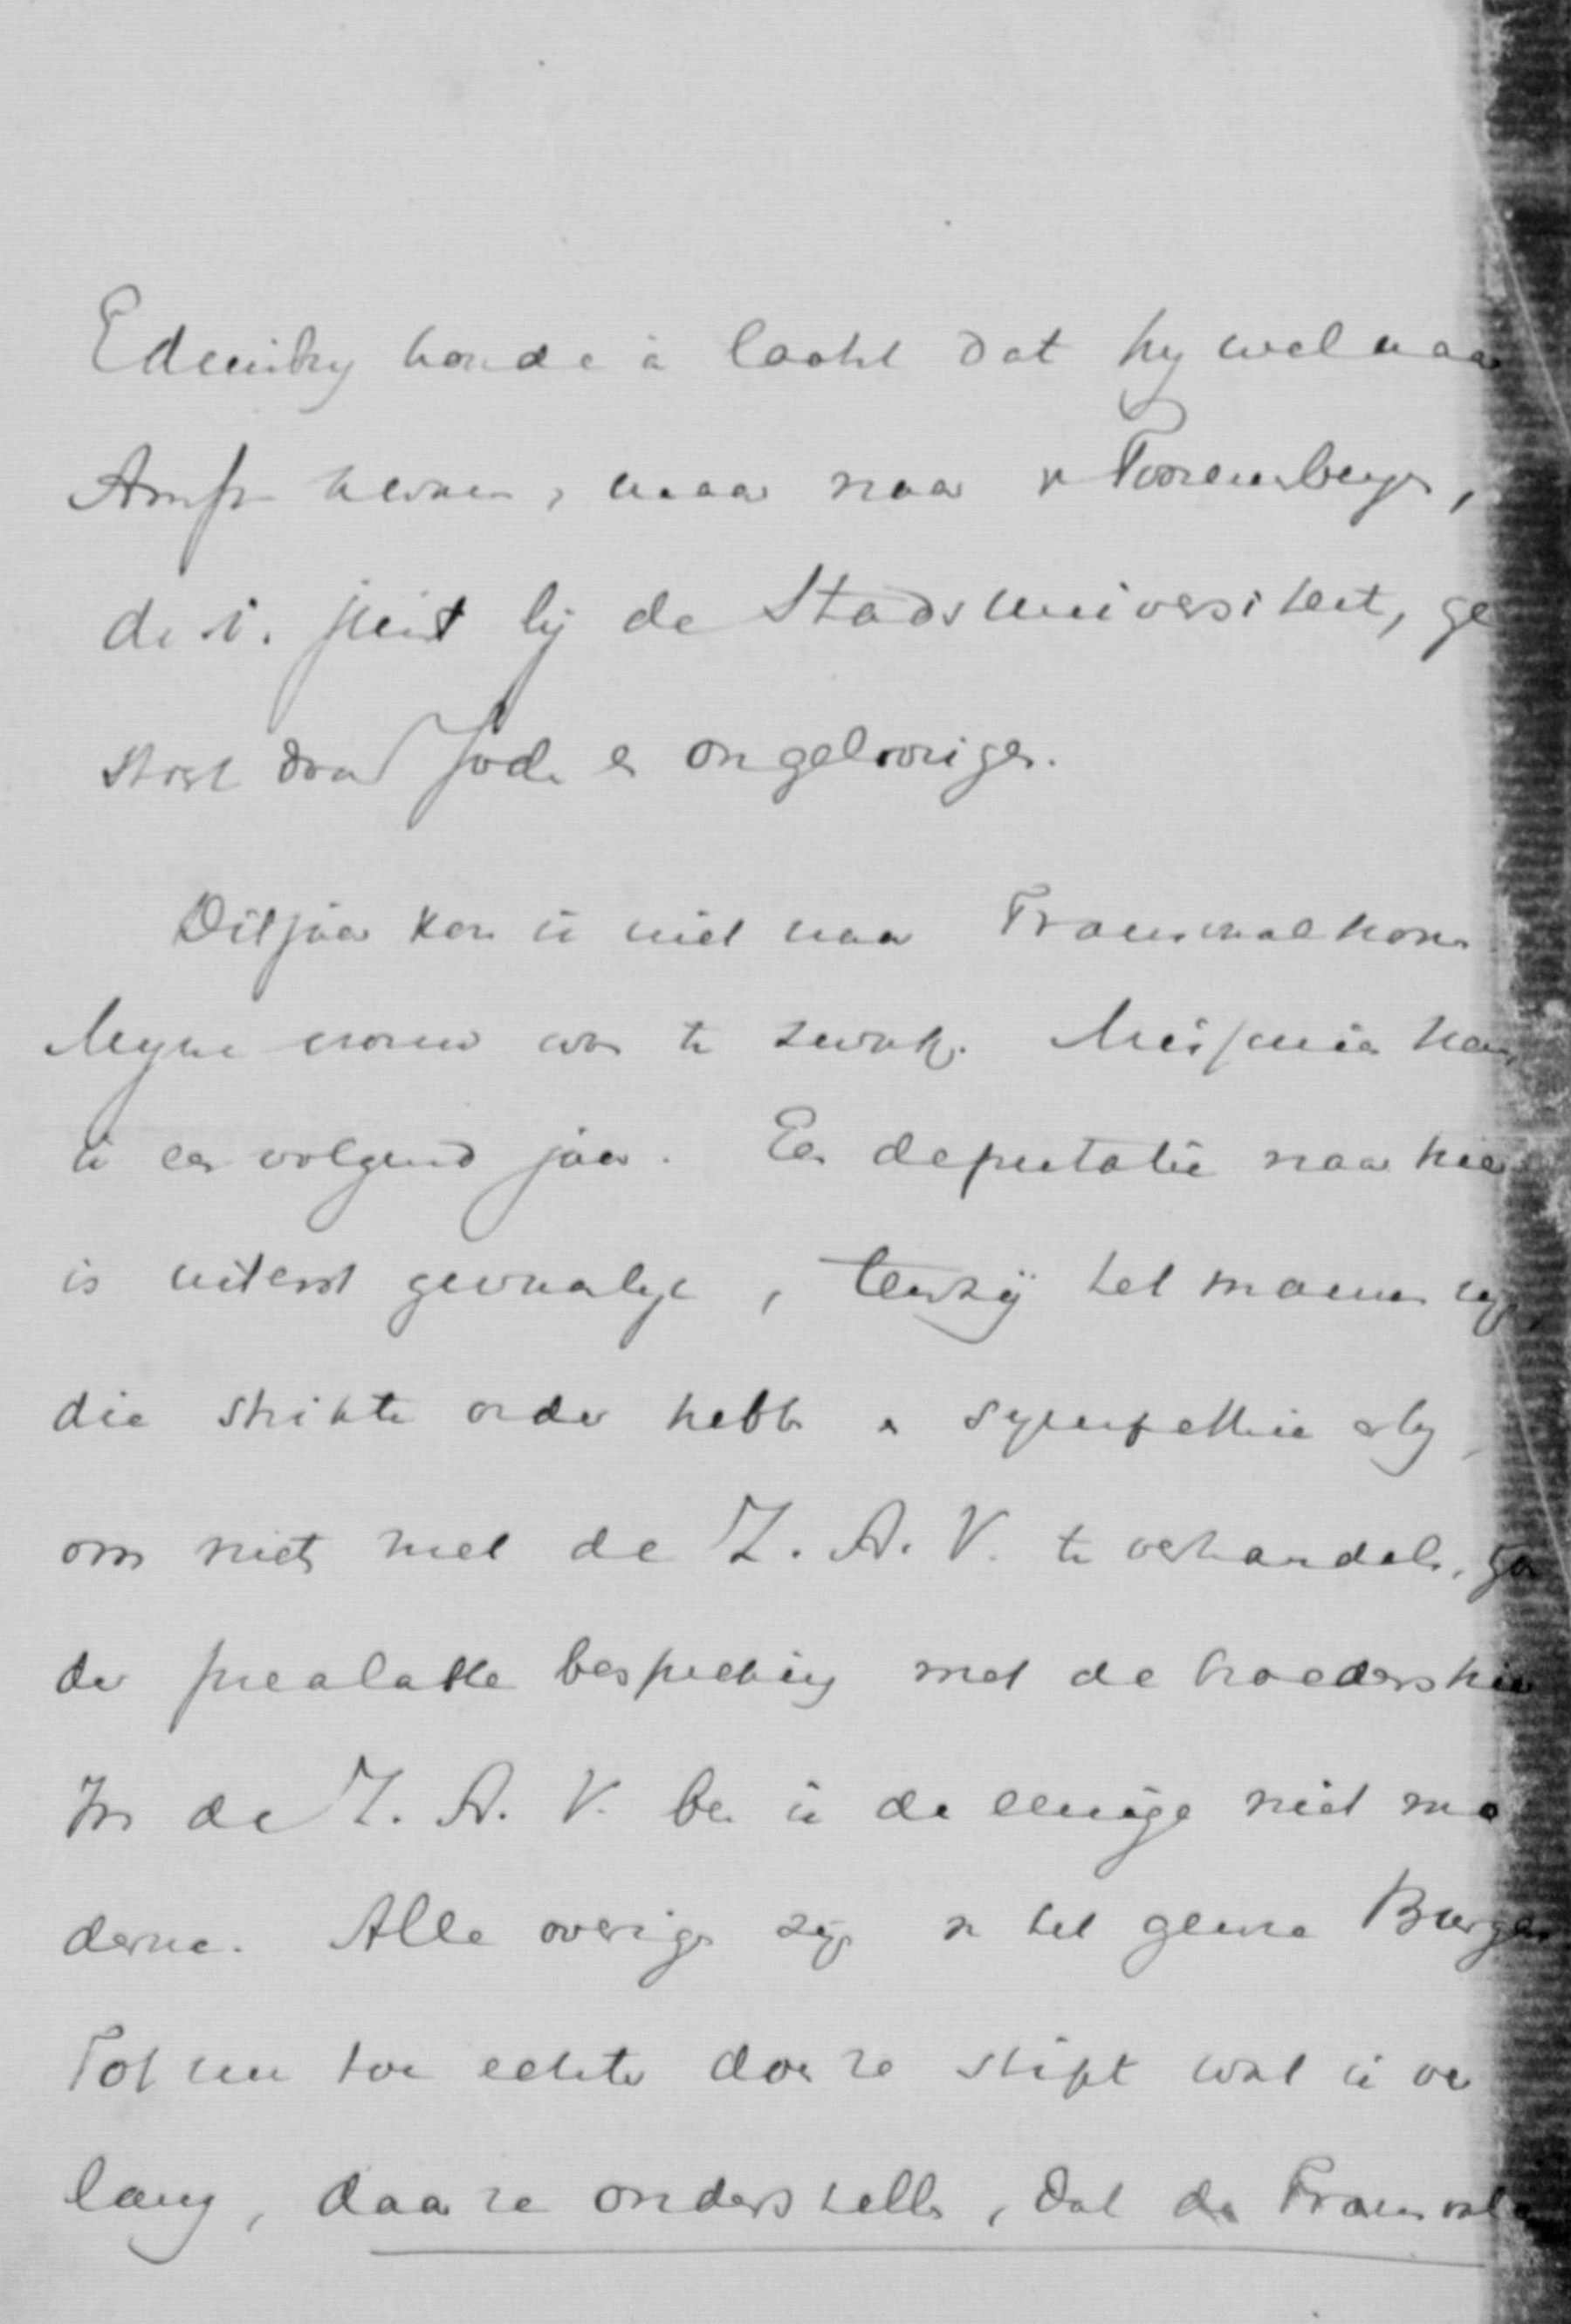 Edenburg honde à lacht dat hij wel naar
Amst komen, maar naar v Toorenenbergen,
de i. juist bij de Stadsuniversiteit, ge
stort door Joden en ongeloovigen.
Dit jaar kon ik niet naar Transvaal komen
Mijne vrouw was te zwak. Misschien kom
ik er volgend jaar. Een deputatie naar hier
is uiterst gevaarlijk, tenzij het mannen zijn,
die strikte order hebben
om niets met de Z. A. V. te verhandelen, zon
der prealable bespreking met de broeders hier
In de Z. A. V. ben ik de eenige niet mo
derne. Alle overige zijn v het genre Burgers
Tot nu toe echter doen ze stipt wat ik ver
lang, daar ze onderstellen, dat de Transvaal